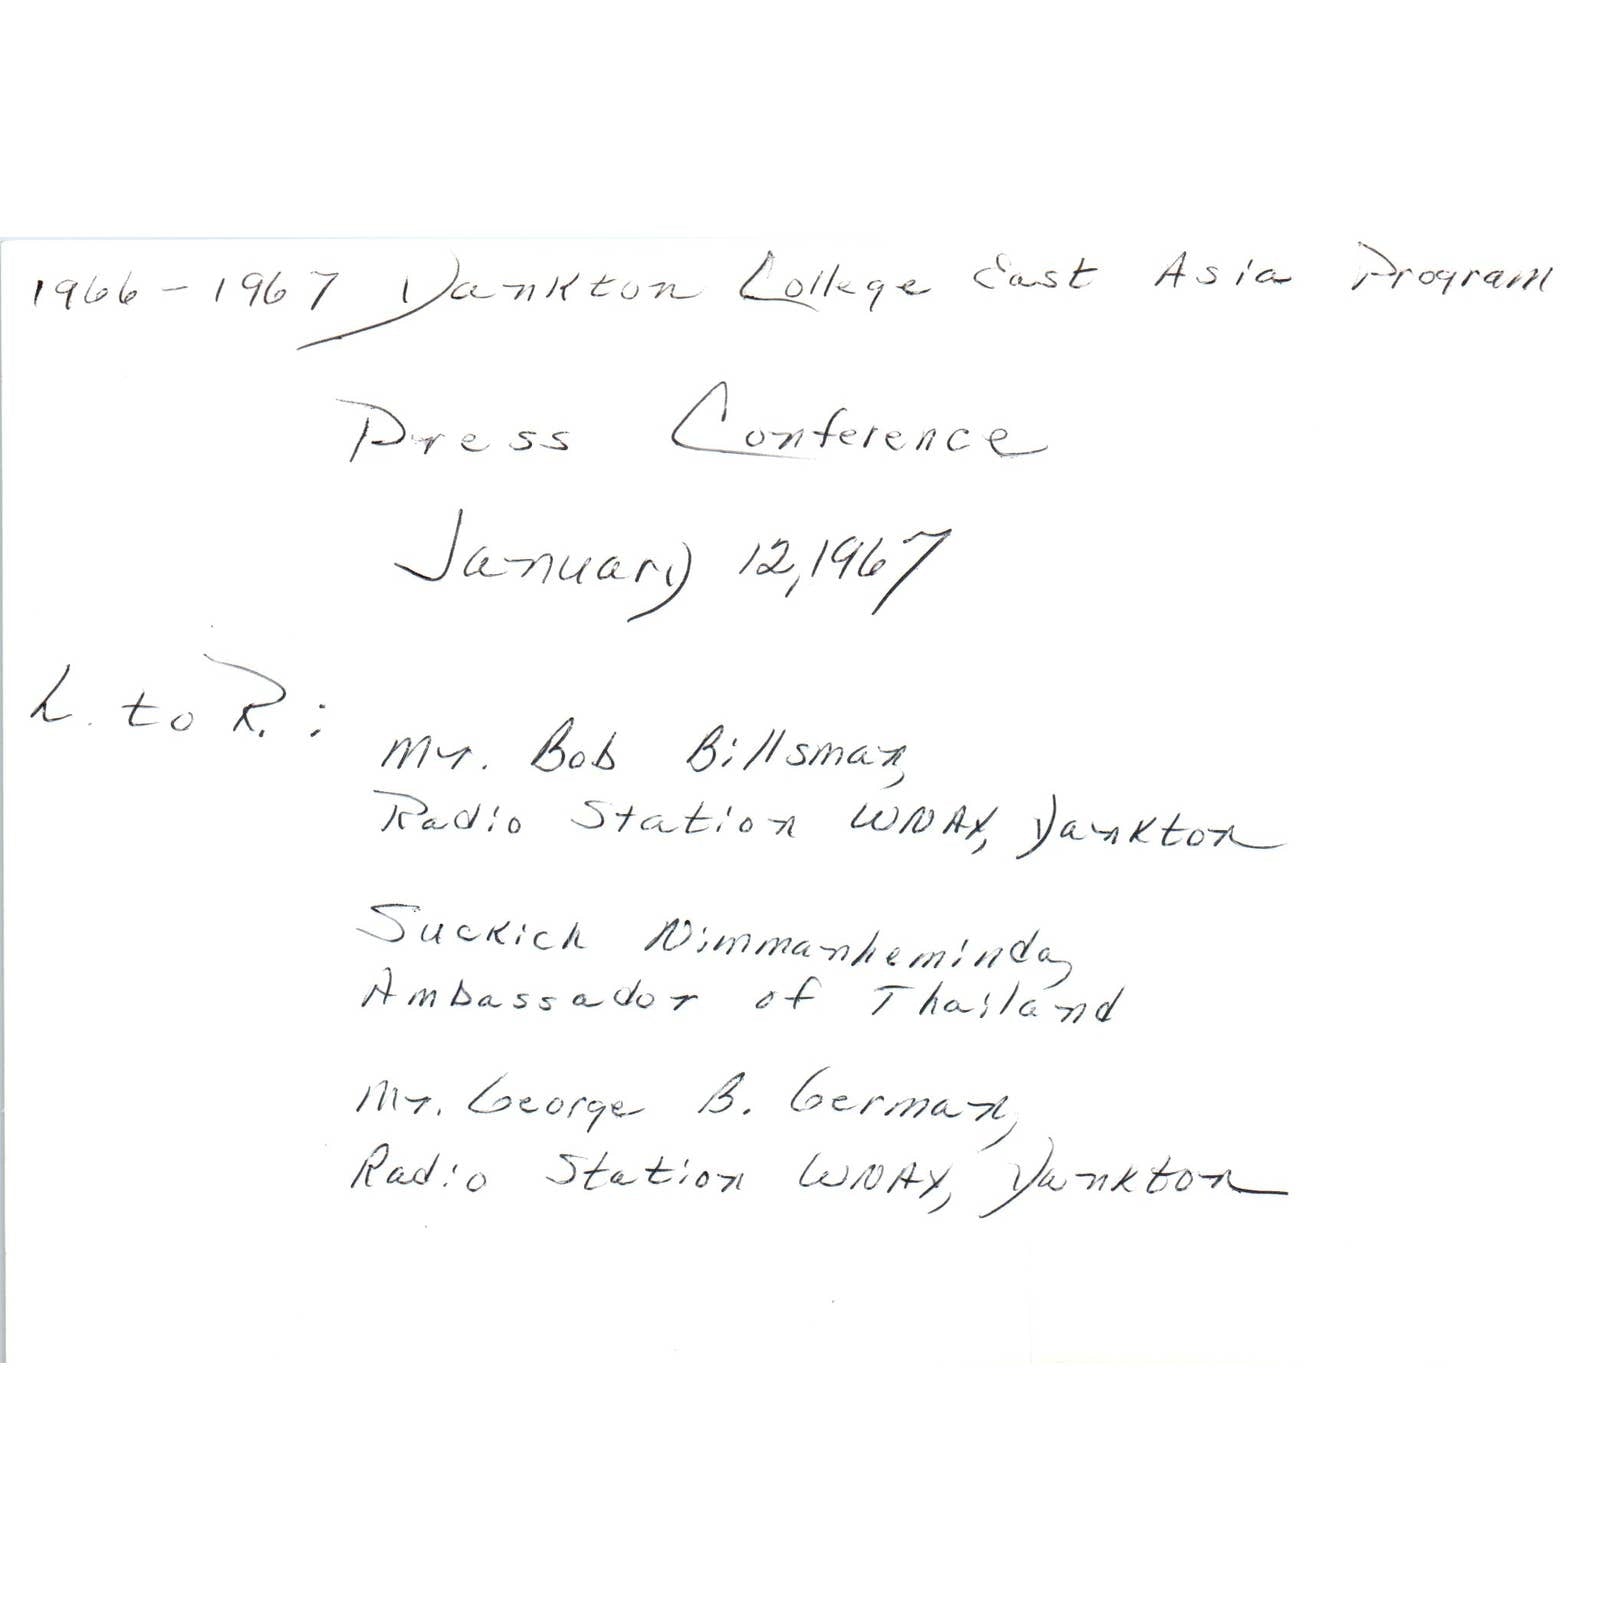 1966-1967 Yankton College East Asia Program
Press Conference
January 12, 1967
L. to R.:
Mr. Bob Billsman,
Radio Station WNAX, Yankton
Suckich Nimmanheminda,
Ambassador of Thailand
Mr. George B. German,
Radio Station WNAX, Yankton